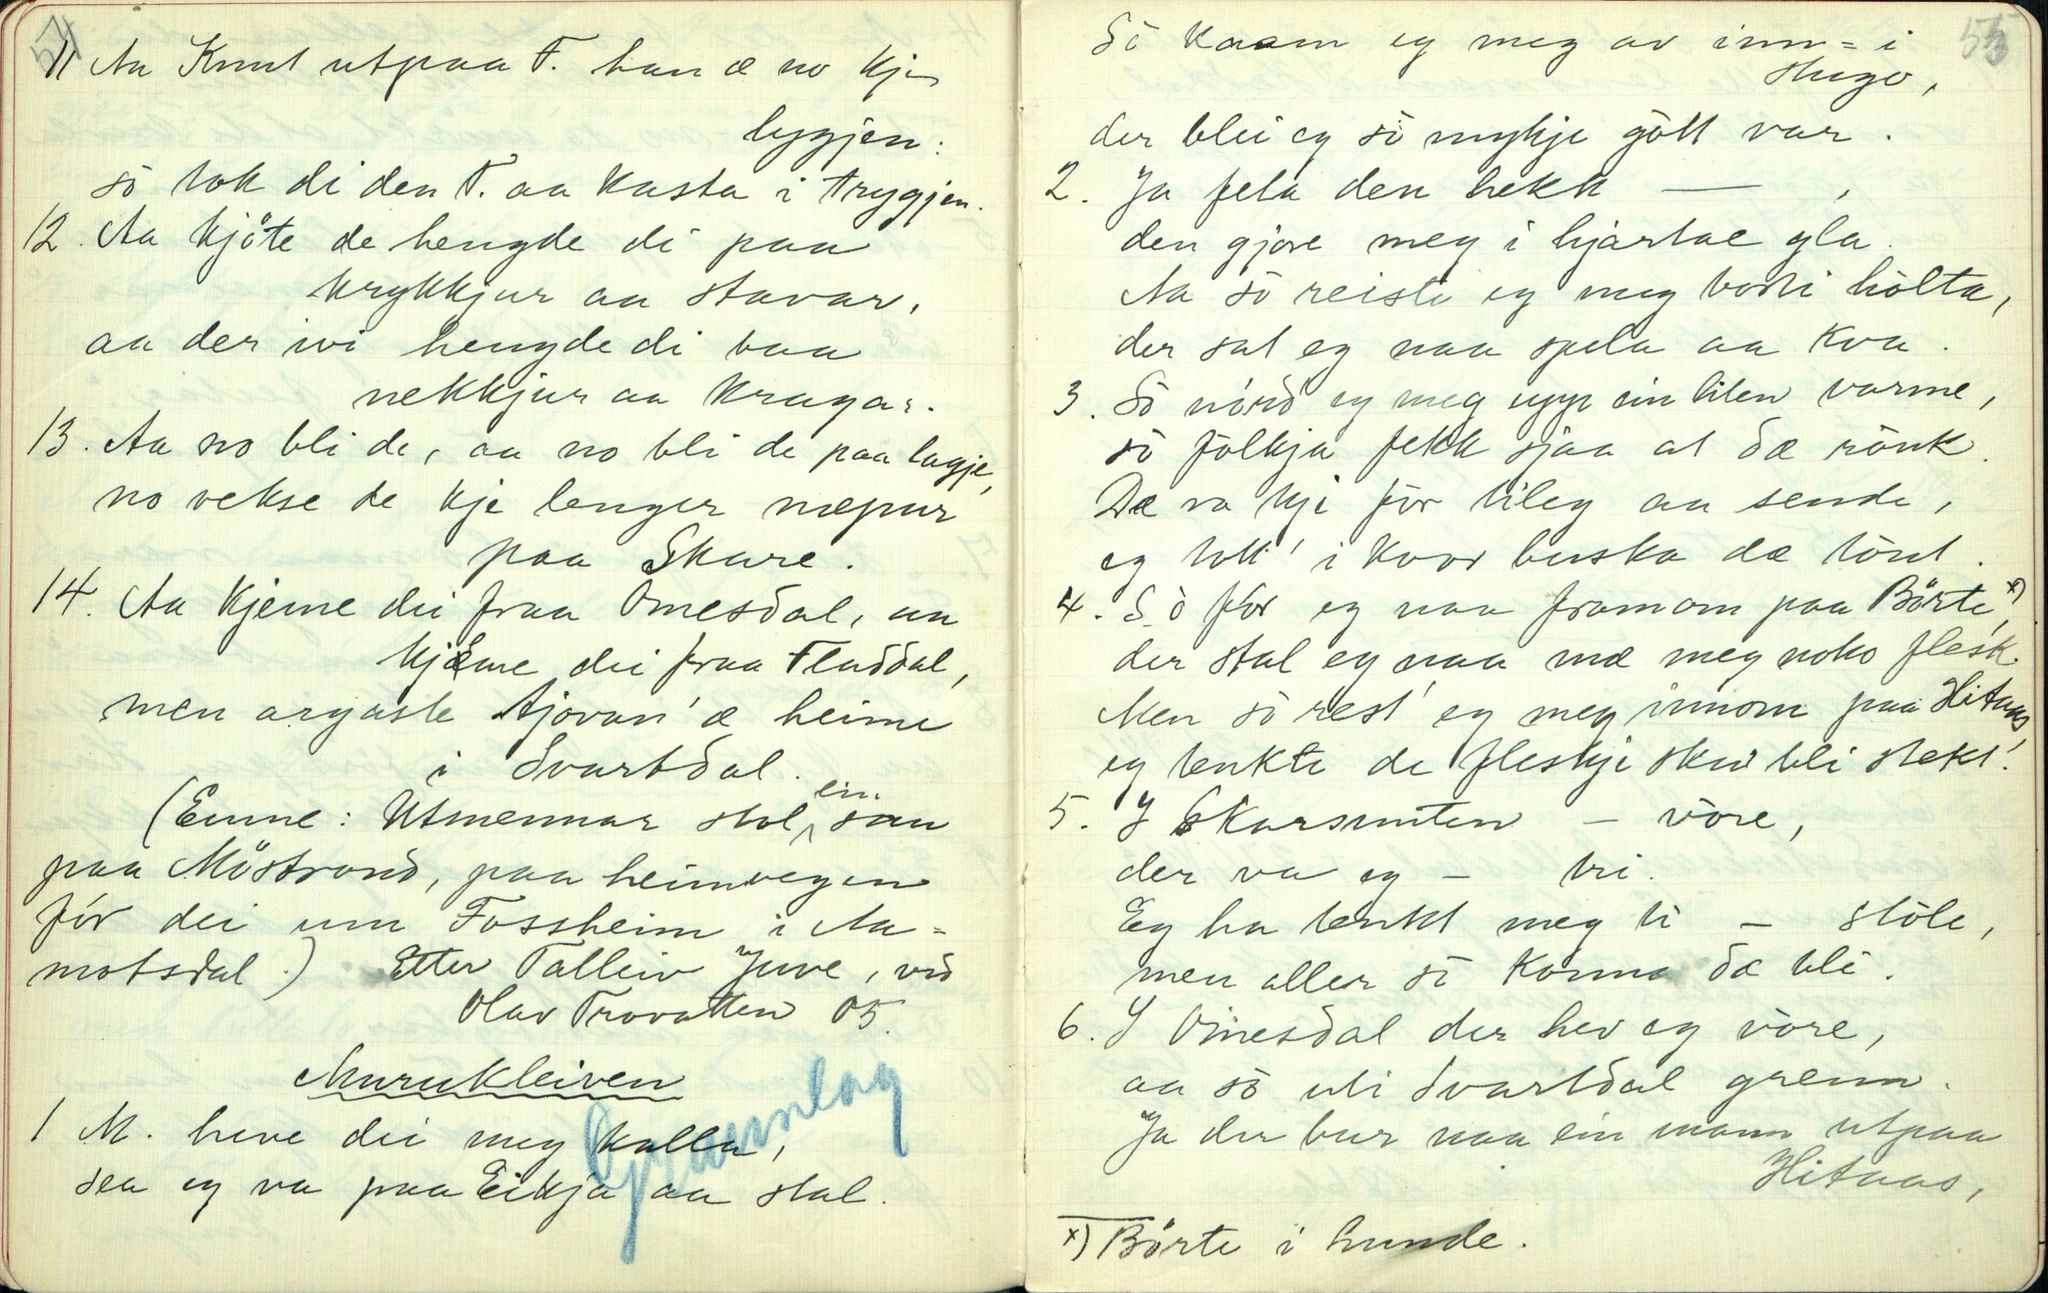 11 Aa Knut utpaa F. han æ no kje
lygjen:
sò tok di den F. aa kasta i trygjen.
12. Aa kjöte de hengde di paa
krykkjur aa stavar,
aa der ivi hengde di baa
nekkjur aa kragar.
13. Aa no bli de, aa no bli de paa lagje,
no vekse de kje lenger næpur
paa Skare.
14. Aa kjeme dei fraa Òmesdal, aa
kjæme dei fraa Fladdal,
men argaste tjòvan' æ heime
i Svartdal.
(Emne: Utmennar stol ein sau
paa Möstrond, paa heimvegen
fór dei um Fossheim i Aa-
motsdal.) Etter Talleiv Juve, vid
Olav Trovatten 05.
Murukleiven
Gamslog
1 M. heve dei meg kalla,
sea eg va paa Eikja aa stal.
55
Sò kaam eg meg av inn = i
stugo,
der blei eg sò mykje gòtt var.
2. Ja fela den hekk —— ,
den gjore meg i hjartae gla.
Aa sò reiste eg meg borti hòlta,
der sat eg naa spela aa kva.
3. Sò nórd eg meg upp ein liten varme,
sò fòlkja fekk sjaa at dæ rònk.
Dæ va kji fòr tileg aa sende,
eg tok' i kvor buska dæ tònt.
4. Sò fór eg naa framom paa Börte, x)
der stal eg naa mæ meg noko flesk.
Men sò rest' eg meg innom paa Hitaas
eg tenkte de fleskje sku' bli stekt!
5. I Skarsnuten — vòre,
der va eg — tri.
Eg ha tenkt meg ti — stòle,
men aller sò konna dæ bli.
6. I Òmesdal der hev eg vòre,
aa sò uti Svartdal grenn.
Ja der bur naa ein mann utpaa
Hitaas,
x) Börte i Lunde.